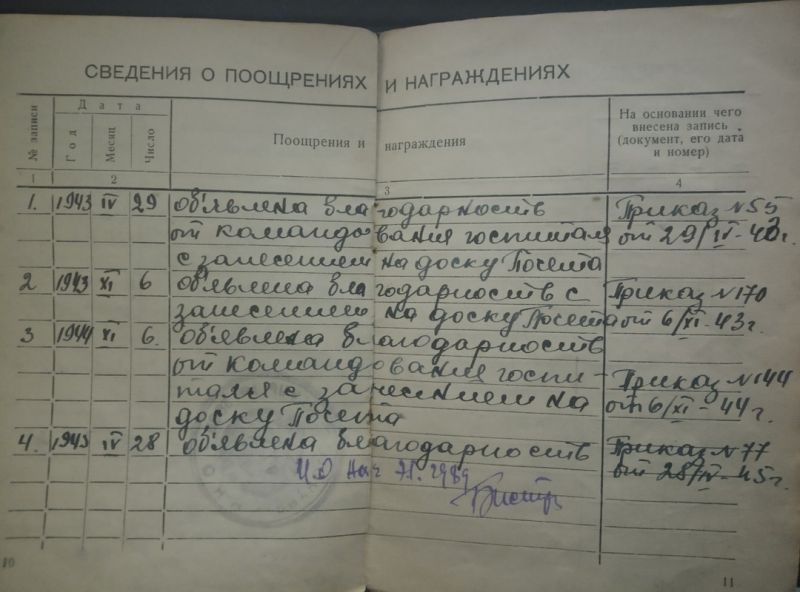 СВЕДЕНИЯ О ПООЩРЕНИЯХ И НАГРАЖДЕНИЯХ
№ записи
Дата
Год
Месяц
Число
Поощрения и награждения
На основании чего
внесена запись
(документ, его дата
и номер)
1 2 3 4
1. 1943 IV 29 об'явлена благодарность Приказ №55
от командования госпиталя от 29/IV-43г.
с занесением на доску Почета
2 1943 XI 6 об'явлена благодарность с Приказ №170
занесением на доску Почета от 6/XI-43г.
3 1944 XI 6. об'явлена благодарность
от командования госпи-
таля с занесением на Приказ №144
доску Почета от 6/XI-44г.
4. 1945 IV 28 об'явлена благодарность Приказ №77
от 28/IV-45г.
И.О Нач
10
11